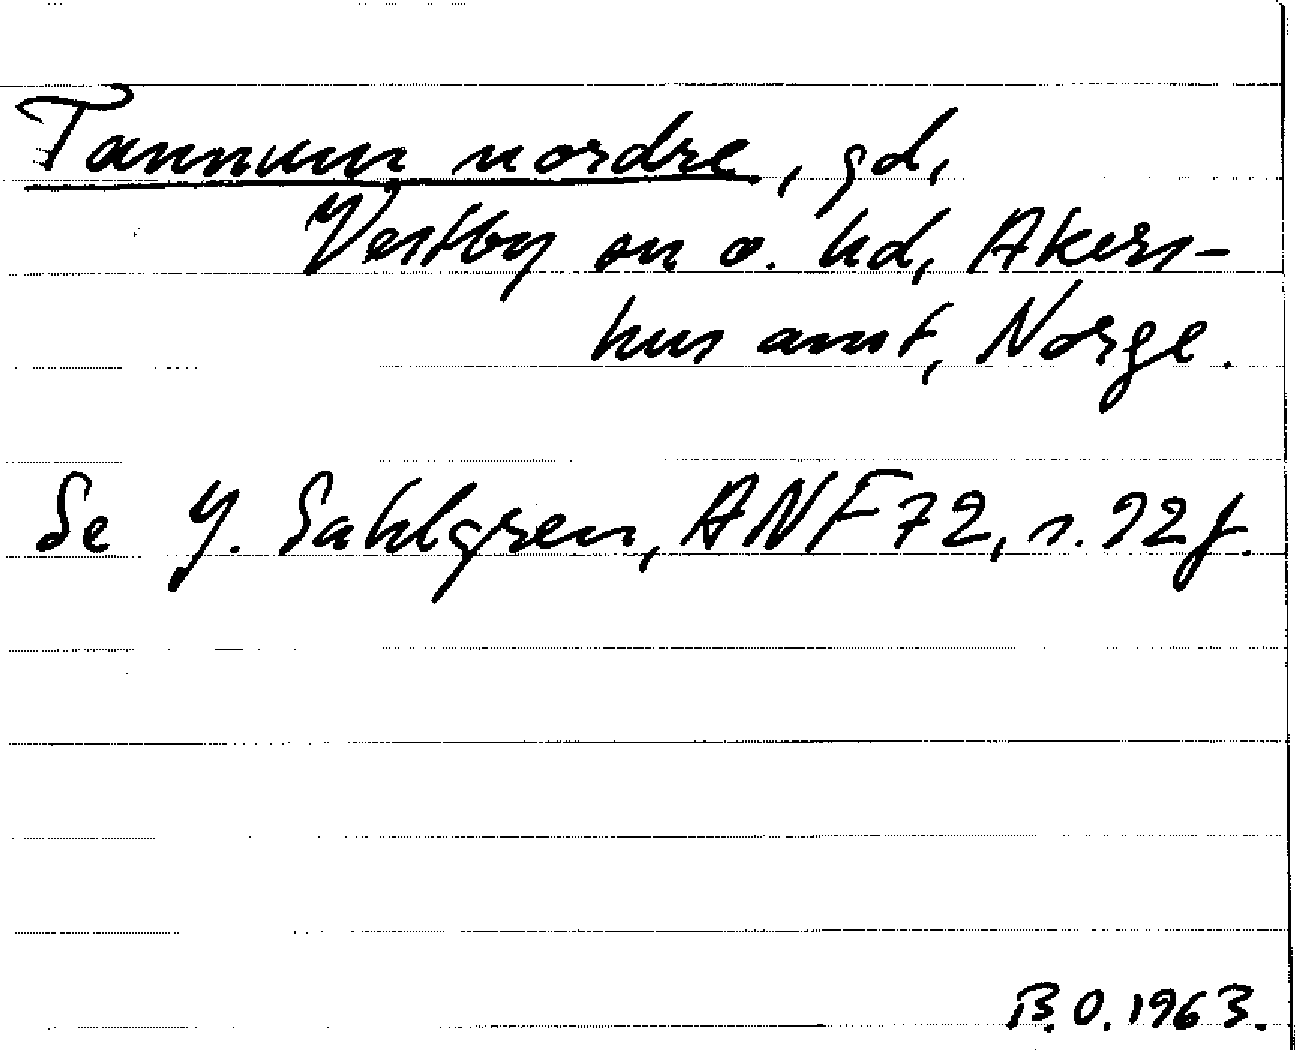 Tannum nordre, gd,
Vestby sn o. hd, Akers-
hus amt, Norge.
Se J. Sahlgren, ANF 72, s. 92 f.
B.O. 1963.